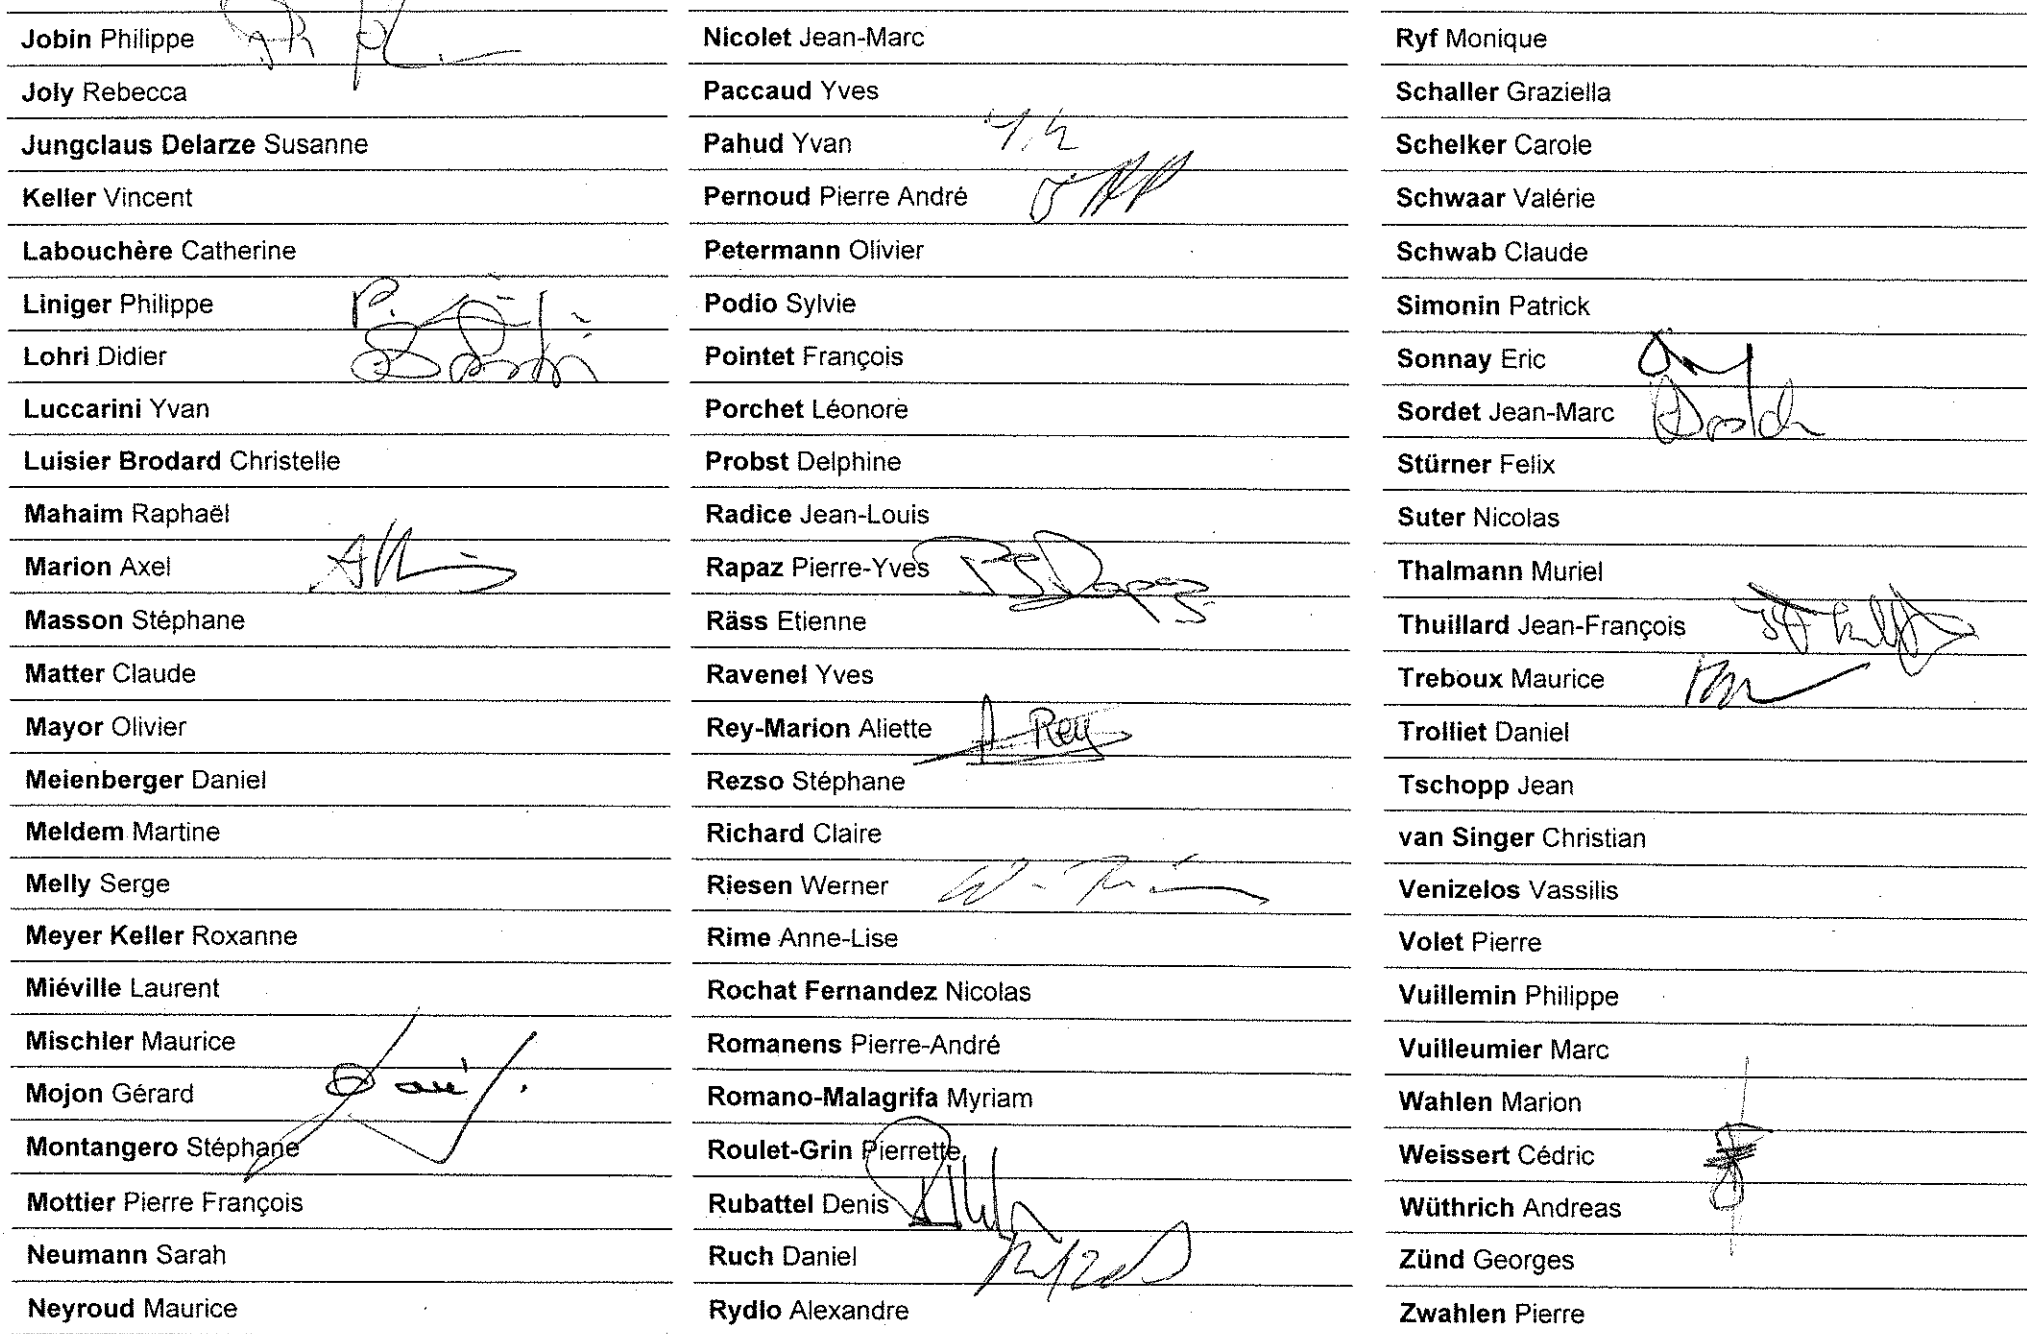 Jobin Philippe
Joly Rebecca
Jungclaus Delarze Susanne
Keller Vincent
Labouchère Catherine
Liniger Philippe
Lohri Didier
Luccarini Yvan
Luisier Brodard Christelle
Mahaim Raphaël
Marion Axel
Masson Stéphane
Matter Claude
Mayor Olivier
Meienberger Daniel
Meldem Martine
Melly Serge
Meyer Keller Roxanne
Miéville Laurent
Mischler Maurice
Mojon Gérard
Montangero Stéphane
Mottier Pierre François
Neumann Sarah
Neyroud Maurice
Nicolet Jean-Marc
Paccaud Yves
Pahud Yvan
Pernoud Pierre André
Petermann Olivier
Podio Sylvie
Pointet François
Porchet Léonore
Probst Delphine
Radice Jean-Louis
Rapaz Pierre-Yves
Räss Etienne
Ravenel Yves
Rey-Marion Aliette A Rey
Rezso Stéphane
Richard Claire
Riesen Werner
Rime Anne-Lise
Rochat Fernandez Nicolas
Romanens Pierre-André
Romano-Malagrifa Myriam
Roulet-Grin Pierrette
Rubattel Denis
Ruch Daniel
Rydlo Alexandre
Ryf Monique
Schaller Graziella
Schelker Carole
Schwaar Valérie
Schwab Claude
Simonin Patrick
Sonnay Eric
Sordet Jean-Marc
Stürner Felix
Suter Nicolas
Thalmann Muriel
Thuillard Jean-François
Treboux Maurice
Trolliet Daniel
Tschopp Jean
van Singer Christian
Venizelos Vassilis
Volet Pierre
Vuillemin Philippe
Vuilleumier Marc
Wahlen Marion
Weissert Cédric
Wüthrich Andreas
Zünd Georges
Zwahlen Pierre